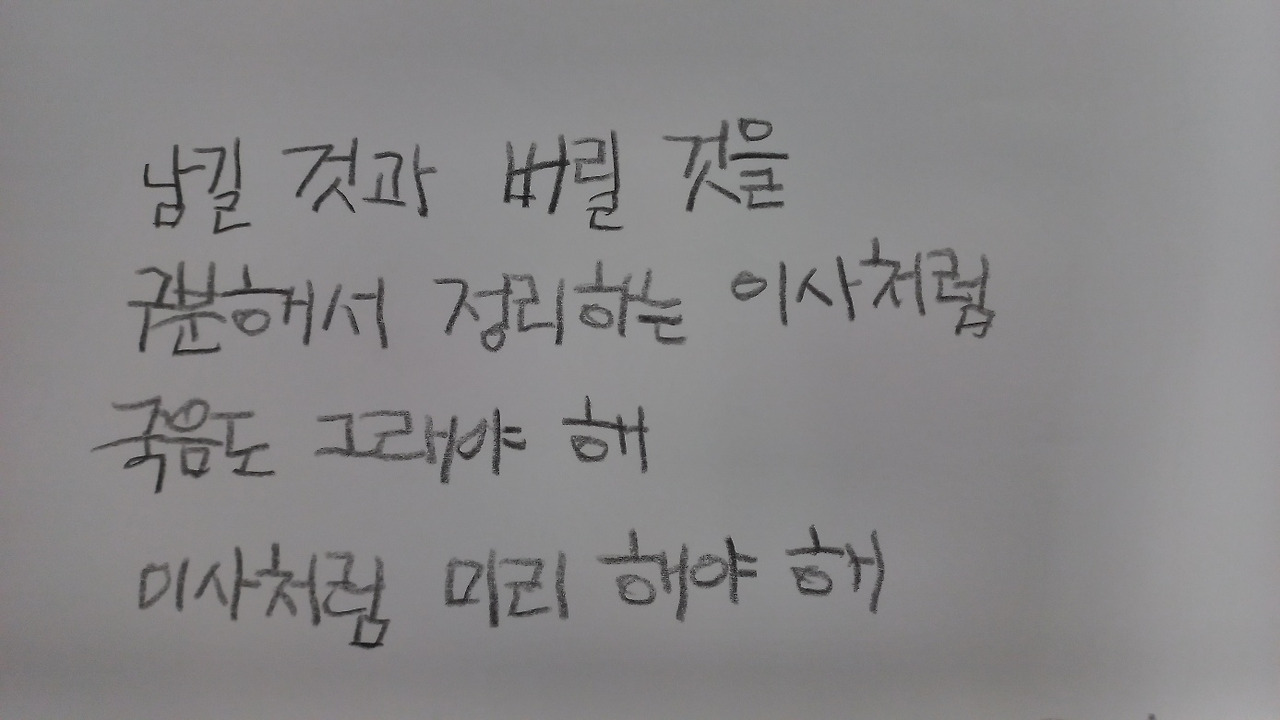 남길 것과 버릴 것을
구분해서 정리하는 이사처럼
죽음도 그래야 해
이사처럼 미리 해야 해